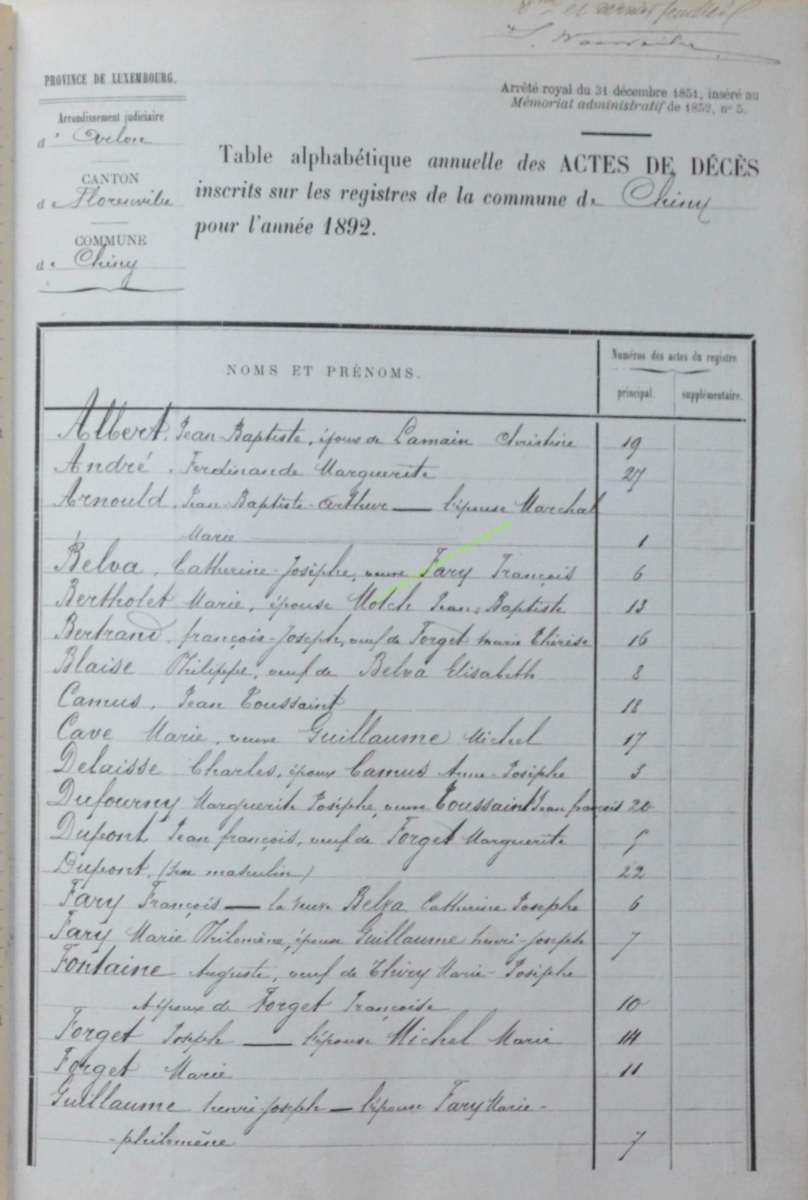 et dernier feuillet
PROVINCE DE LUXEMBOURG.
Arrêté royal du 31 décembre 1851, inséré au
Mémorial administratif de 1852, n° 5.
Arrondissement judiciaire
d'Arlon
CANTON
de Florenville
COMMUNE
de Chiny
Table alphabétique annuelle des ACTES DE DÉCÈS
inscrits sur les registres de la commune de Chiny
pour l'année 1892.
NOMS ET PRÉNOMS.
Numéros des actes du registre
principal. supplémentaire.
Albert, Jean-Baptiste, époux de Lamain Christine 19
André, Ferdinande Marguerite 27
Arnould, Jean-Baptiste-Arthur — l'épouse Marchal
Marie 1
Belva, Catherine-Josèphe, veuve Fary François 6
Bertholet Marie, épouse Motch Jean-Baptiste 13
Bertrand, françois-Joseph, veuf de Forget marie Thérèse 16
Blaise Philippe, veuf de Belva Elisabeth 8
Camus, Jean Toussaint 18
Cave Marie, veuve Guillaume Michel 17
Delaisse Charles, époux Camus Anne-Josèphe 3
Dufourny Marguerite Josèphe, veuve Toussaint Jean françois 20
Dupont Jean françois, veuf de Forget Marguerite 5
Dupont, (sexe masculin) 22
Fary François — la veuve Belva Catherine Josephe 6
Fary Marie Philomène, épouse Guillaume henri-Joseph 7
Fontaine Auguste, veuf de Thiry Marie-Josèphe
& époux de Forget Françoise 10
Forget Joseph — l'épouse Michel Marie 14
Forget Marie 11
Guillaume henri-Joseph — l'épouse Fary Marie-
-philomène 7